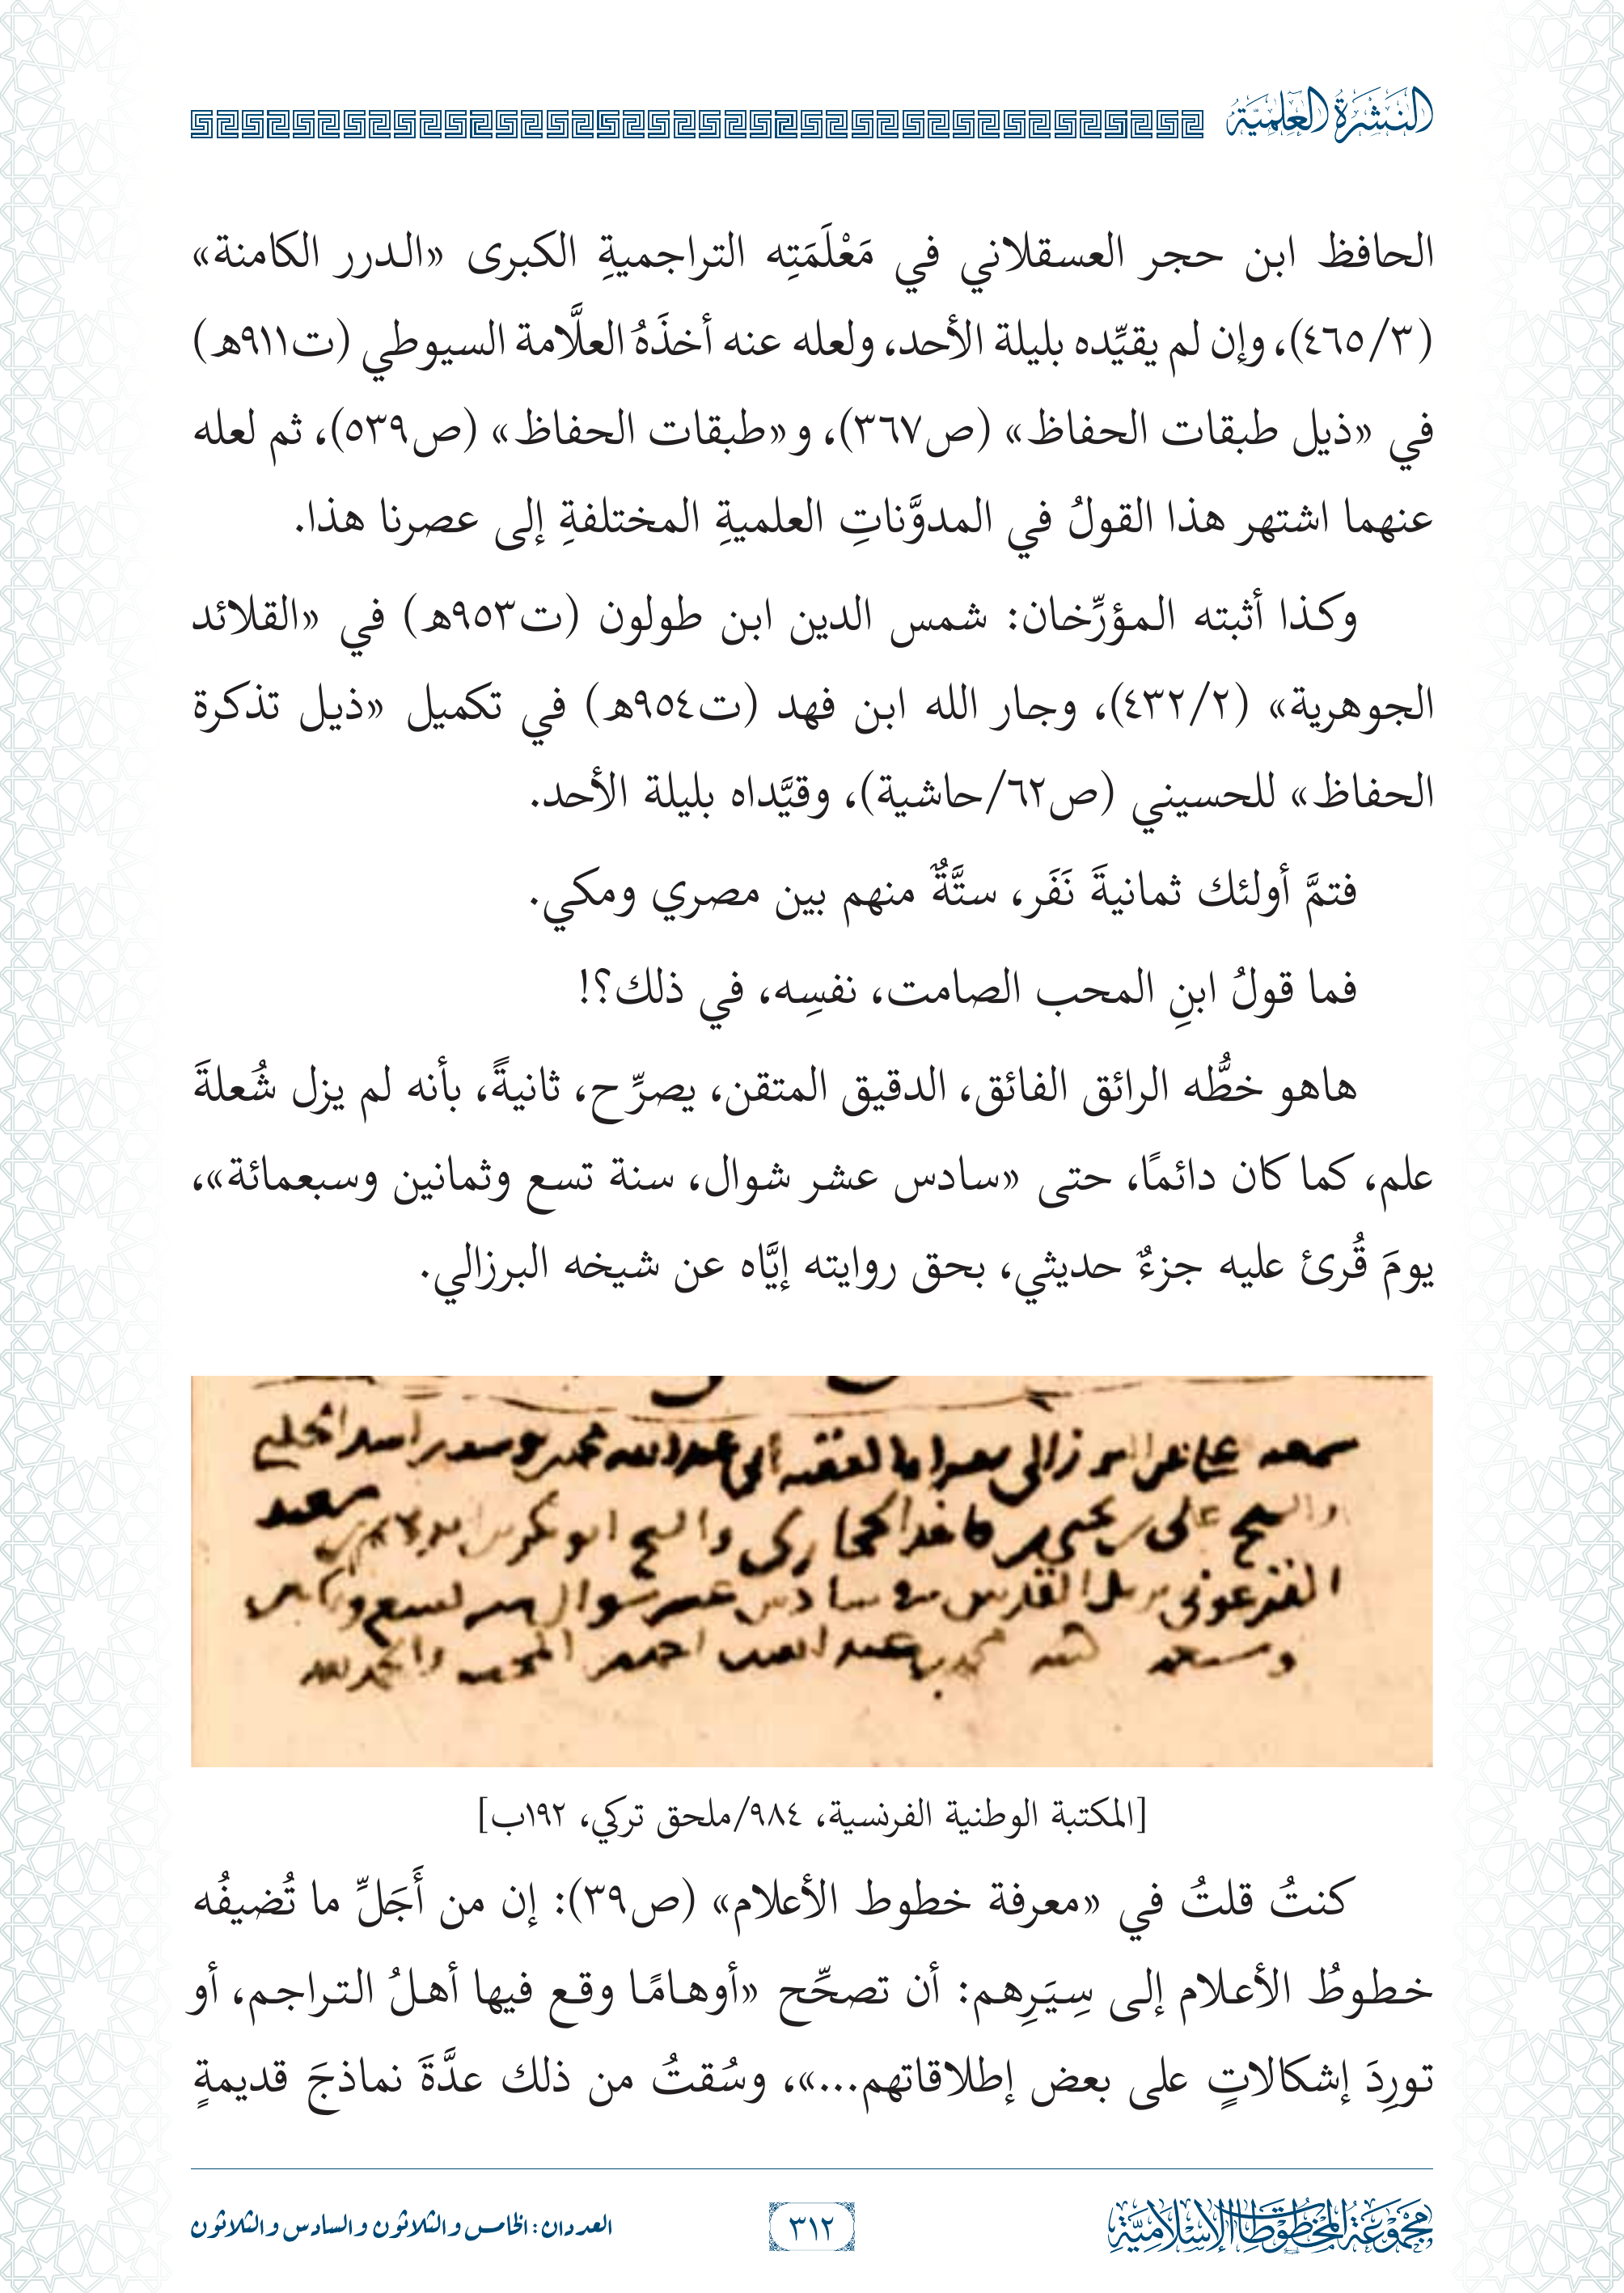 النشرة العلمية
الحافظ ابن حجر العسقلاني في مَعْلَمَتِه التراجميةِ الكبرى «الدرر الكامنة»
(٤٦٥/٣)، وإن لم يقيِّده بليلة الأحد، ولعله عنه أخذَهُ العلَّامة السيوطي (ت٩١١هـ)
في «ذيل طبقات الحفاظ» (ص٣٦٧)، و«طبقات الحفاظ» (ص٥٣٩)، ثم لعله
عنهما اشتهر هذا القولُ في المدوَّناتِ العلميةِ المختلفةِ إلى عصرنا هذا.
وكذا أثبته المؤرِّخان: شمس الدين ابن طولون (ت٩٥٣هـ) في «القلائد
الجوهرية» (٤٣٢/٢)، وجار الله ابن فهد (ت٩٥٤هـ) في تكميل «ذيل تذكرة
الحفاظ» للحسيني (ص٦٢/حاشية)، وقيَّداه بليلة الأحد.
فتمَّ أولئك ثمانيةَ نَفَر، ستَّةٌ منهم بين مصري ومكي.
فما قولُ ابنِ المحب الصامت، نفسِه، في ذلك؟!
هاهو خطُّه الرائق الفائق، الدقيق المتقن، يصرِّح، ثانيةً، بأنه لم يزل شُعلةَ
علم، كما كان دائمًا، حتى «سادس عشر شوال، سنة تسع وثمانين وسبعمائة»،
يومَ قُرئ عليه جزءٌ حديثي، بحق روايته إيَّاه عن شيخه البرزالي.
[المكتبة الوطنية الفرنسية، ٩٨٤/ملحق تركي، ١٩٢ب]
كنتُ قلتُ في «معرفة خطوط الأعلام» (ص٣٩): إن من أَجَلِّ ما تُضيفُه
خطوطُ الأعلام إلى سِيَرِهم: أن تصحِّح «أوهامًا وقع فيها أهلُ التراجم، أو
تورِدَ إشكالاتٍ على بعض إطلاقاتهم...»، وسُقتُ من ذلك عدَّةَ نماذجَ قديمةٍ
مجموعة المخطوطات الإسلامية
٣١٢
العددان: الخامس والثلاثون والسادس والثلاثون